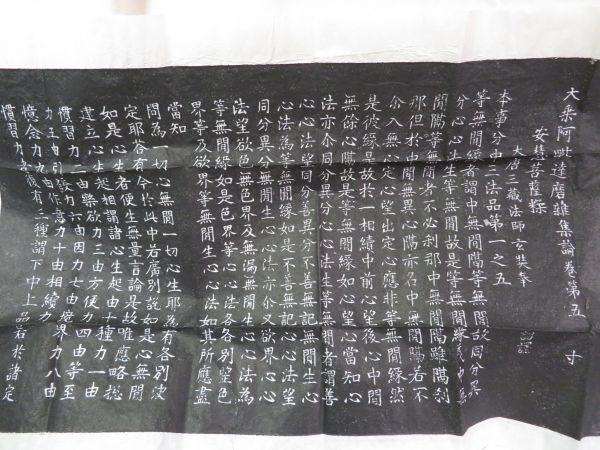 大乘阿毗達磨雜集論卷第五 寸
安慧菩薩糅
大唐三藏法師玄奘奉 詔譯
本事分中三法品第一之五
等無間緣者謂中無間隔等無間故同分異
分心心法生等無間故是等無間緣義中無
間隔等無間者不必剎那中無間隔雖隔剎
那但於中間無異心隔亦名中無間隔若不
介入無心定心望出定心應非等無間緣然
是彼緣是故於一相續中前心望後心中間
無餘心隔故是等無間緣如心望心當知心
法亦介同分異分心心法生等無間者謂善
心心法望同分善異分不善無記無間生心
心法為等無間緣如是不善無記心心法望
同分異分無間生心心法亦介又欲界心心
法望欲色無色界及無漏無間生心心法為
等無間緣如是色界等心心法各各別望色
界等及欲界等無間生心心法如其所應盡
當知
問為一切心無間一切心生耶為有各別決
定耶答有今於此中若廣別說如是心無間
如是心生者便生無量言論是故唯應略總
建立心生起相謂諸心生起由十種力一由
慣習力二由樂欲力三由方便力四由等至
力五由引發力六由因力七由境界力八由
憶念力九由作意力十由相續力
慣習力者復有三種謂下中上品若於諸定